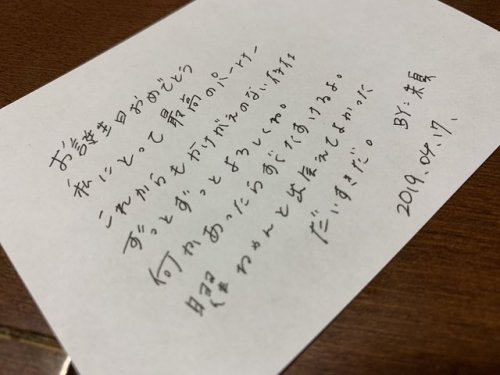 お誕生日おめでとう
私にとって最高のパートナー
これからもかけがえのない
ずっとずっとよろしくね。
何かあったらすぐたすけるよ。
わんと出逢えてよかった
だいすきだ。
BY:
2019.04.17.